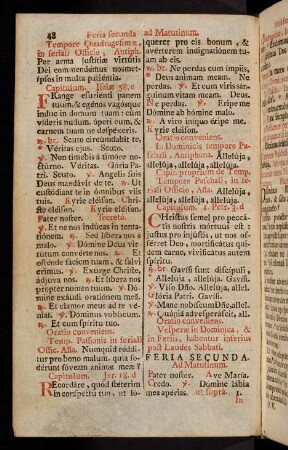 48 Feria secunda ad Matutinum.
Tempore Quadragesimæ,
in feriali Officio, Antiph.
Per arma justitiæ virtutis
Dei commendemus nosmet-
ipsos in multa patientia.
Capitulum. Isaiæ 58. c
FRange esurienti panem
tuum, & egenos vagosque
induc in domum tuam: cum
videris nudum, operi eum, &
carnem tuam ne despexeris.
℟. br. Scuto circúndabit te,
Véritas ejus. Scuto.
℣. Non timébis à timóre no-
ctúrno. Véritas. Glória Pa-
tri. Scuto. ℣. Angelis suis
Deus mandávit de te. ℟. Ut
custódiant te in ómnibus viis
tuis. Kyrie eléison. Chri-
ste eléison. Kyrie eléison.
Pater noster. secretò.
℣. Et ne nos indúcas in tenta-
tiónem. ℟. Sed líbera nos à
malo. ℣. Dómine Deus vir-
tútum convérte nos. ℟. Et
osténde fáciem tuam, & salvi
érimus. ℣. Exúrge Christe,
ádjuva nos. ℟. Et líbera nos
propter nomen tuum. ℣. Dó-
mine exáudi oratiónem meã.
℟. Et clamor meus ad te vé-
niat. ℣. Dóminus vobíscum.
℟. Et cum spíritu tuo.
Oratio conveniens.
Temp. Passionis in feriali
Offic. Añа. Numquid réddi-
tur pro bono malum, quia fo-
dérunt fóveam ánimæ meæ?
Capitulum. Jer. 18. d
REcordáre, quòd stéterim
in conspéctu tuo, ut lo-
querer pro eis bonum, &
avérterem indignatiónem tu-
am ab eis.
℟. br. Ne perdas cum ímpiis,
Deus ánimam meam. Ne
perdas. ℣. Et cum viris sán-
guinum vitam meam. Deus.
Ne perdas. ℣. Eripe me
Dómine ab hómine malo.
℟. A viro iníquo éripe me.
Kyrie eléison.
Oratio conveniens.
In Dominicis tempore Pa-
schali, Antiphona. Allelúja,
allelúja, allelúja, allelúja.
Capit. proprium de Temp.
Tempore Paschali, in fe-
riali Officio, Aña. Allelúja,
allelúja, allelúja, allelúja.
Capitulum. 1. Petr. 3. d
CHristus semel pro peccá-
tis nostris mórtuus est:
justus pro injústis, ut nos of-
férret Deo, mortificátus qui-
dem carne, vivificátus autem
spíritu.
℟. br. Gavísi sunt discípuli,
Allelúja, allelúja. Gavísi.
℣. Viso Dño. Allelúja, allel.
Glória Patri. Gavísi.
℣. Mane nobíscum Dñe, allel.
℟. Quóniã advesperáscit, all.
Oratio conveniens.
Vesperæ in Dominica, &
in Feriis, habentur inferius
post Laudes Sabbati.
FERIA SECUNDA.
Ad Matutinum.
Pater noster. Ave María.
Credo. ℣. Dómine lábia
mea apéries. ut suprà. 1.
In